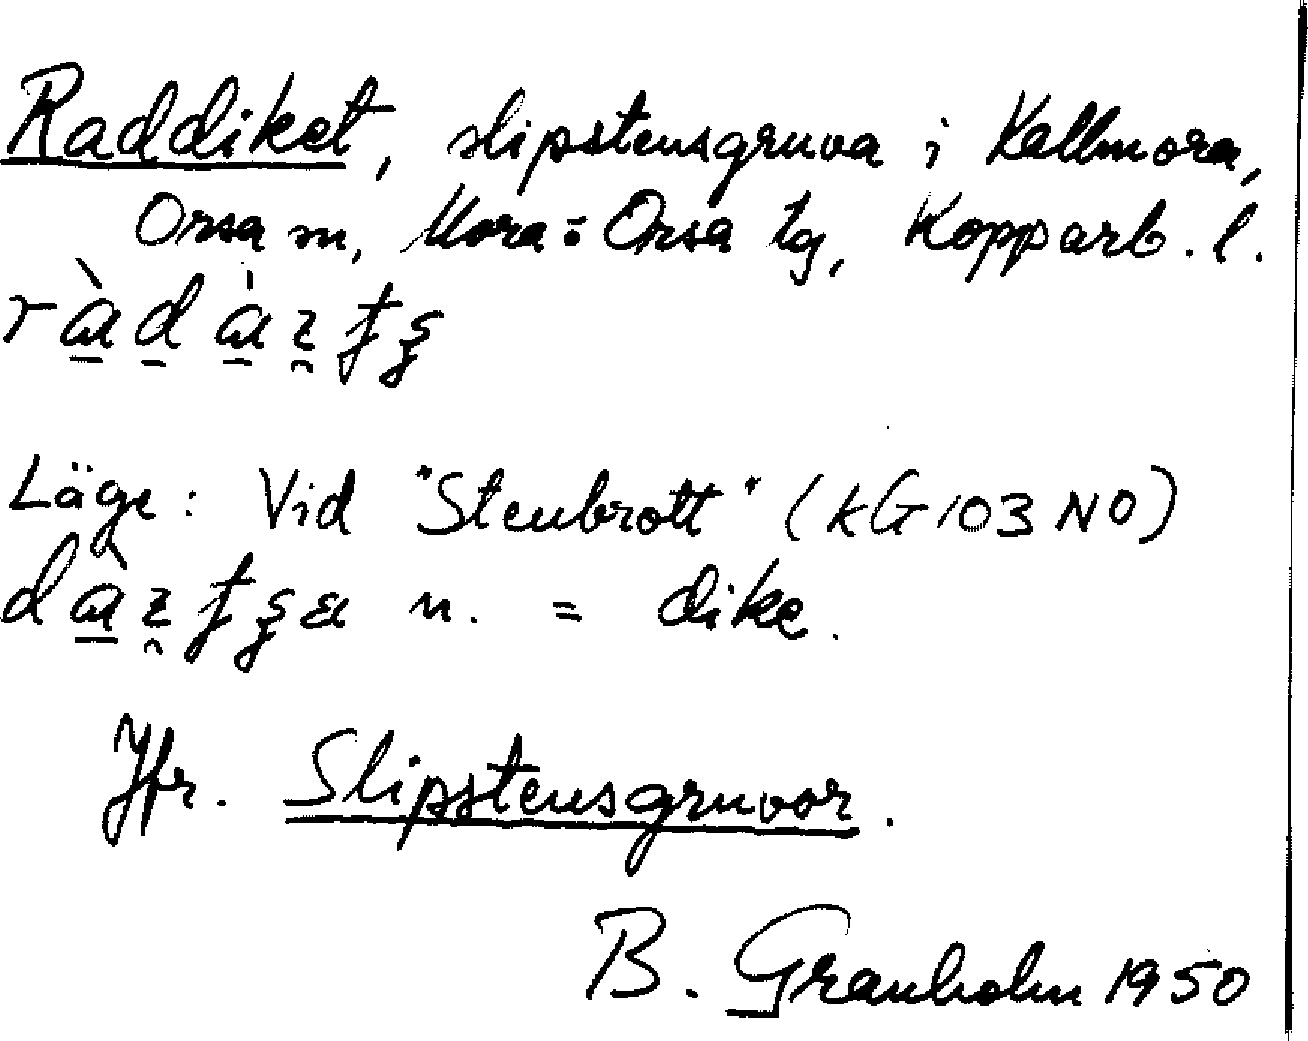 Raddiket, slipstensgruva i Kallmora,
Orsa sn, Mora o Orsa tg, Kopparb. l.
Läge: Vid "Stenbrott" (kG 103 NO)
n. = dike.
Jfr. Slipstensgruvor.
B. Granholm 1950